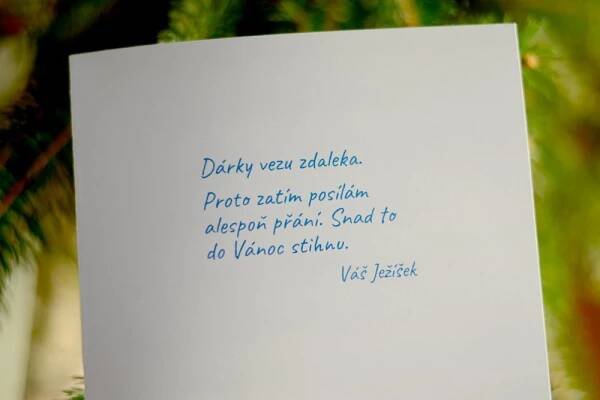 Dárky vezu zdaleka.
Proto zatím posílám
alespoň přání. Snad to
do Vánoc stihnu.
Váš Ježíšek